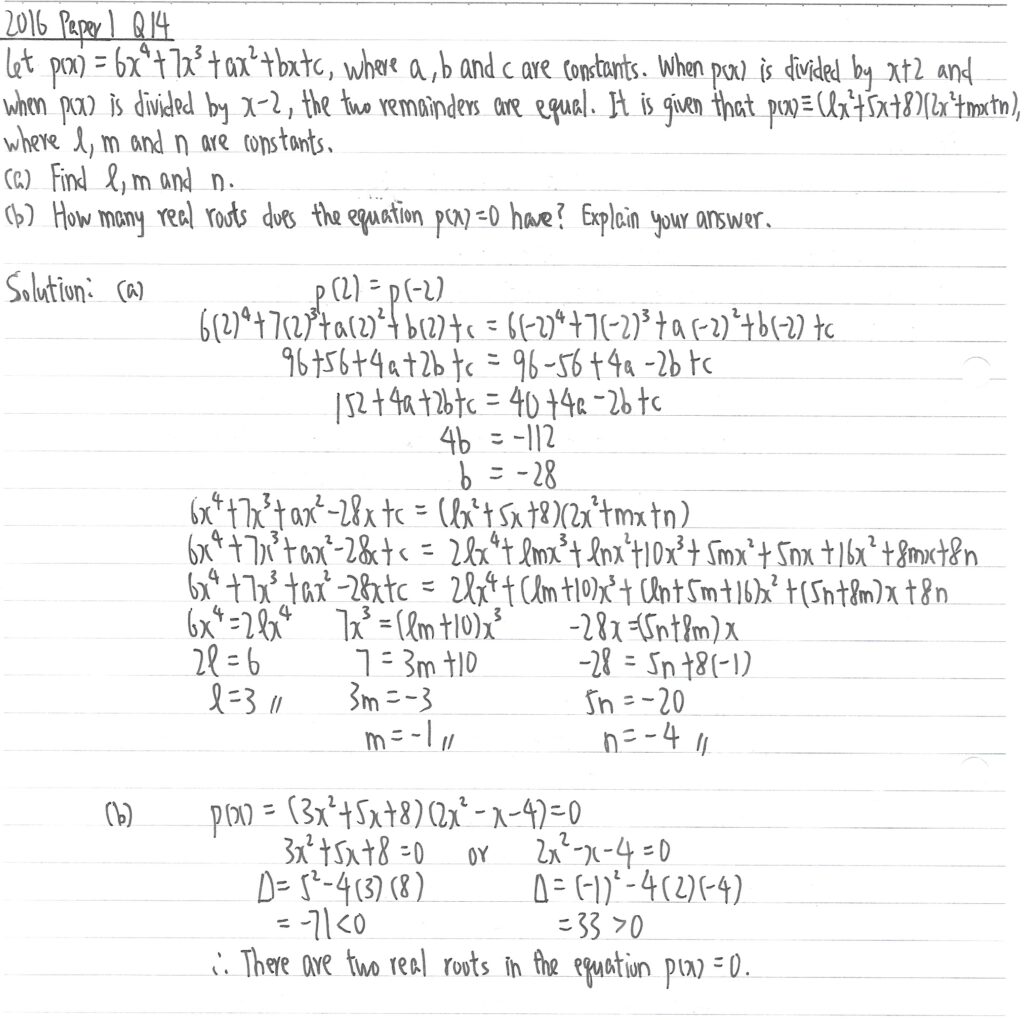 2016 Paper 1 Q14
Let p(x) = 6x⁴+7x³+ax²+bx+c, where a, b and c are constants. When p(x) is divided by x+2 and
when p(x) is divided by x-2, the two remainders are equal. It is given that p(x)≡(lx²+5x+8)(2x²+mx+n),
where l, m and n are constants.
(a) Find l, m and n.
(b) How many real roots does the equation p(x)=0 have? Explain your answer.
Solution: (a) p(2) = p(-2)
6(2)⁴+7(2)³+a(2)²+b(2)+c = 6(-2)⁴+7(-2)³+a(-2)²+b(-2)+c
96+56+4a+2b+c = 96-56+4a-2b+c
152+4a+2b+c = 40+4a-2b+c
4b = -112
b = -28
6x⁴+7x³+ax²-28x+c = (lx²+5x+8)(2x²+mx+n)
6x⁴+7x³+ax²-28x+c = 2lx⁴+lmx³+lnx²+10x³+5mx²+5nx+16x²+8mx+8n
6x⁴+7x³+ax²-28x+c = 2lx⁴+(lm+10)x³+(ln+5m+16)x²+(5n+8m)x+8n
6x⁴=2lx⁴ 7x³=(lm+10)x³ -28x=(5n+8m)x
2l=6 7=3m+10 -28=5n+8(-1)
l=3 // 3m=-3 5n=-20
m=-1 // n=-4 //
(b) p(x) = (3x²+5x+8)(2x²-x-4)=0
3x²+5x+8=0 or 2x²-x-4=0
Δ=5²-4(3)(8) Δ=(-1)²-4(2)(-4)
=-71<0 =33>0
∴ There are two real roots in the equation p(x)=0.